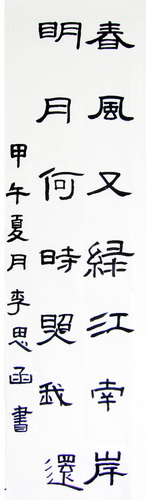 春風又緑江南岸
明月何時照我還
甲午夏月李思函書